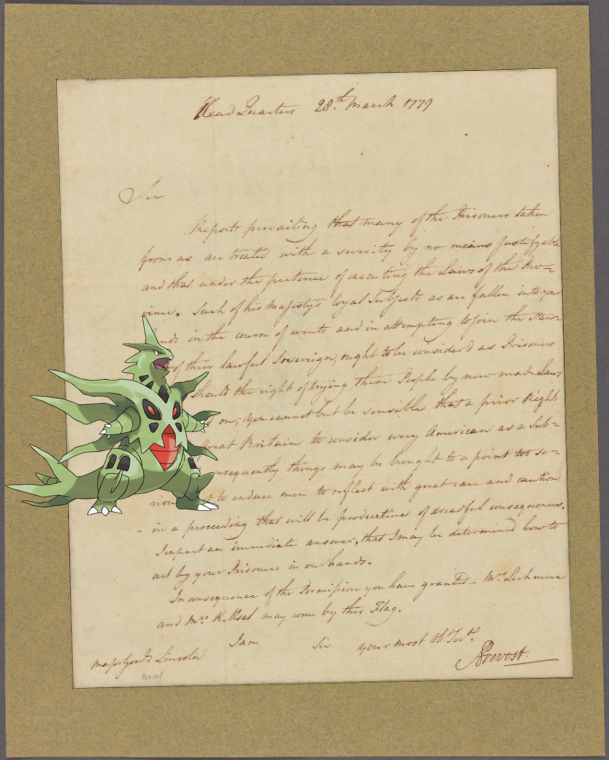 Head Quarters 28th March 1779
Sir
Reports prevailing that many of the Prisoners taken
from us are treated with a severity by no means justifyable
and that under the pretence of executing the Laws of the Pro-
vince. Such of his Majestys loyal Subjects as are fallen into your
in the course of events and in attempting to join the Stan-
of their lawful Sovereign, ought to be consider'd as Prisoners
Should the right of trying these People by new made Laws
on; you cannot but be sensible that a prior Right
Great Britain to consider every American as a Sub-
onsequently things may be brought to a point too se-
rious to induce men to reflect with great care and caution
in a proceeding that will be productive of dreadful consequences.
I expect an immediate answer, that I may be determined how to
act by your Prisoners in our hands.
In consequence of the Permission you have granted - Mrs
and Mrs may come by this Flag.
I am Sir your most Ob. Servt.
Major Genl. Lincoln
A Prevost